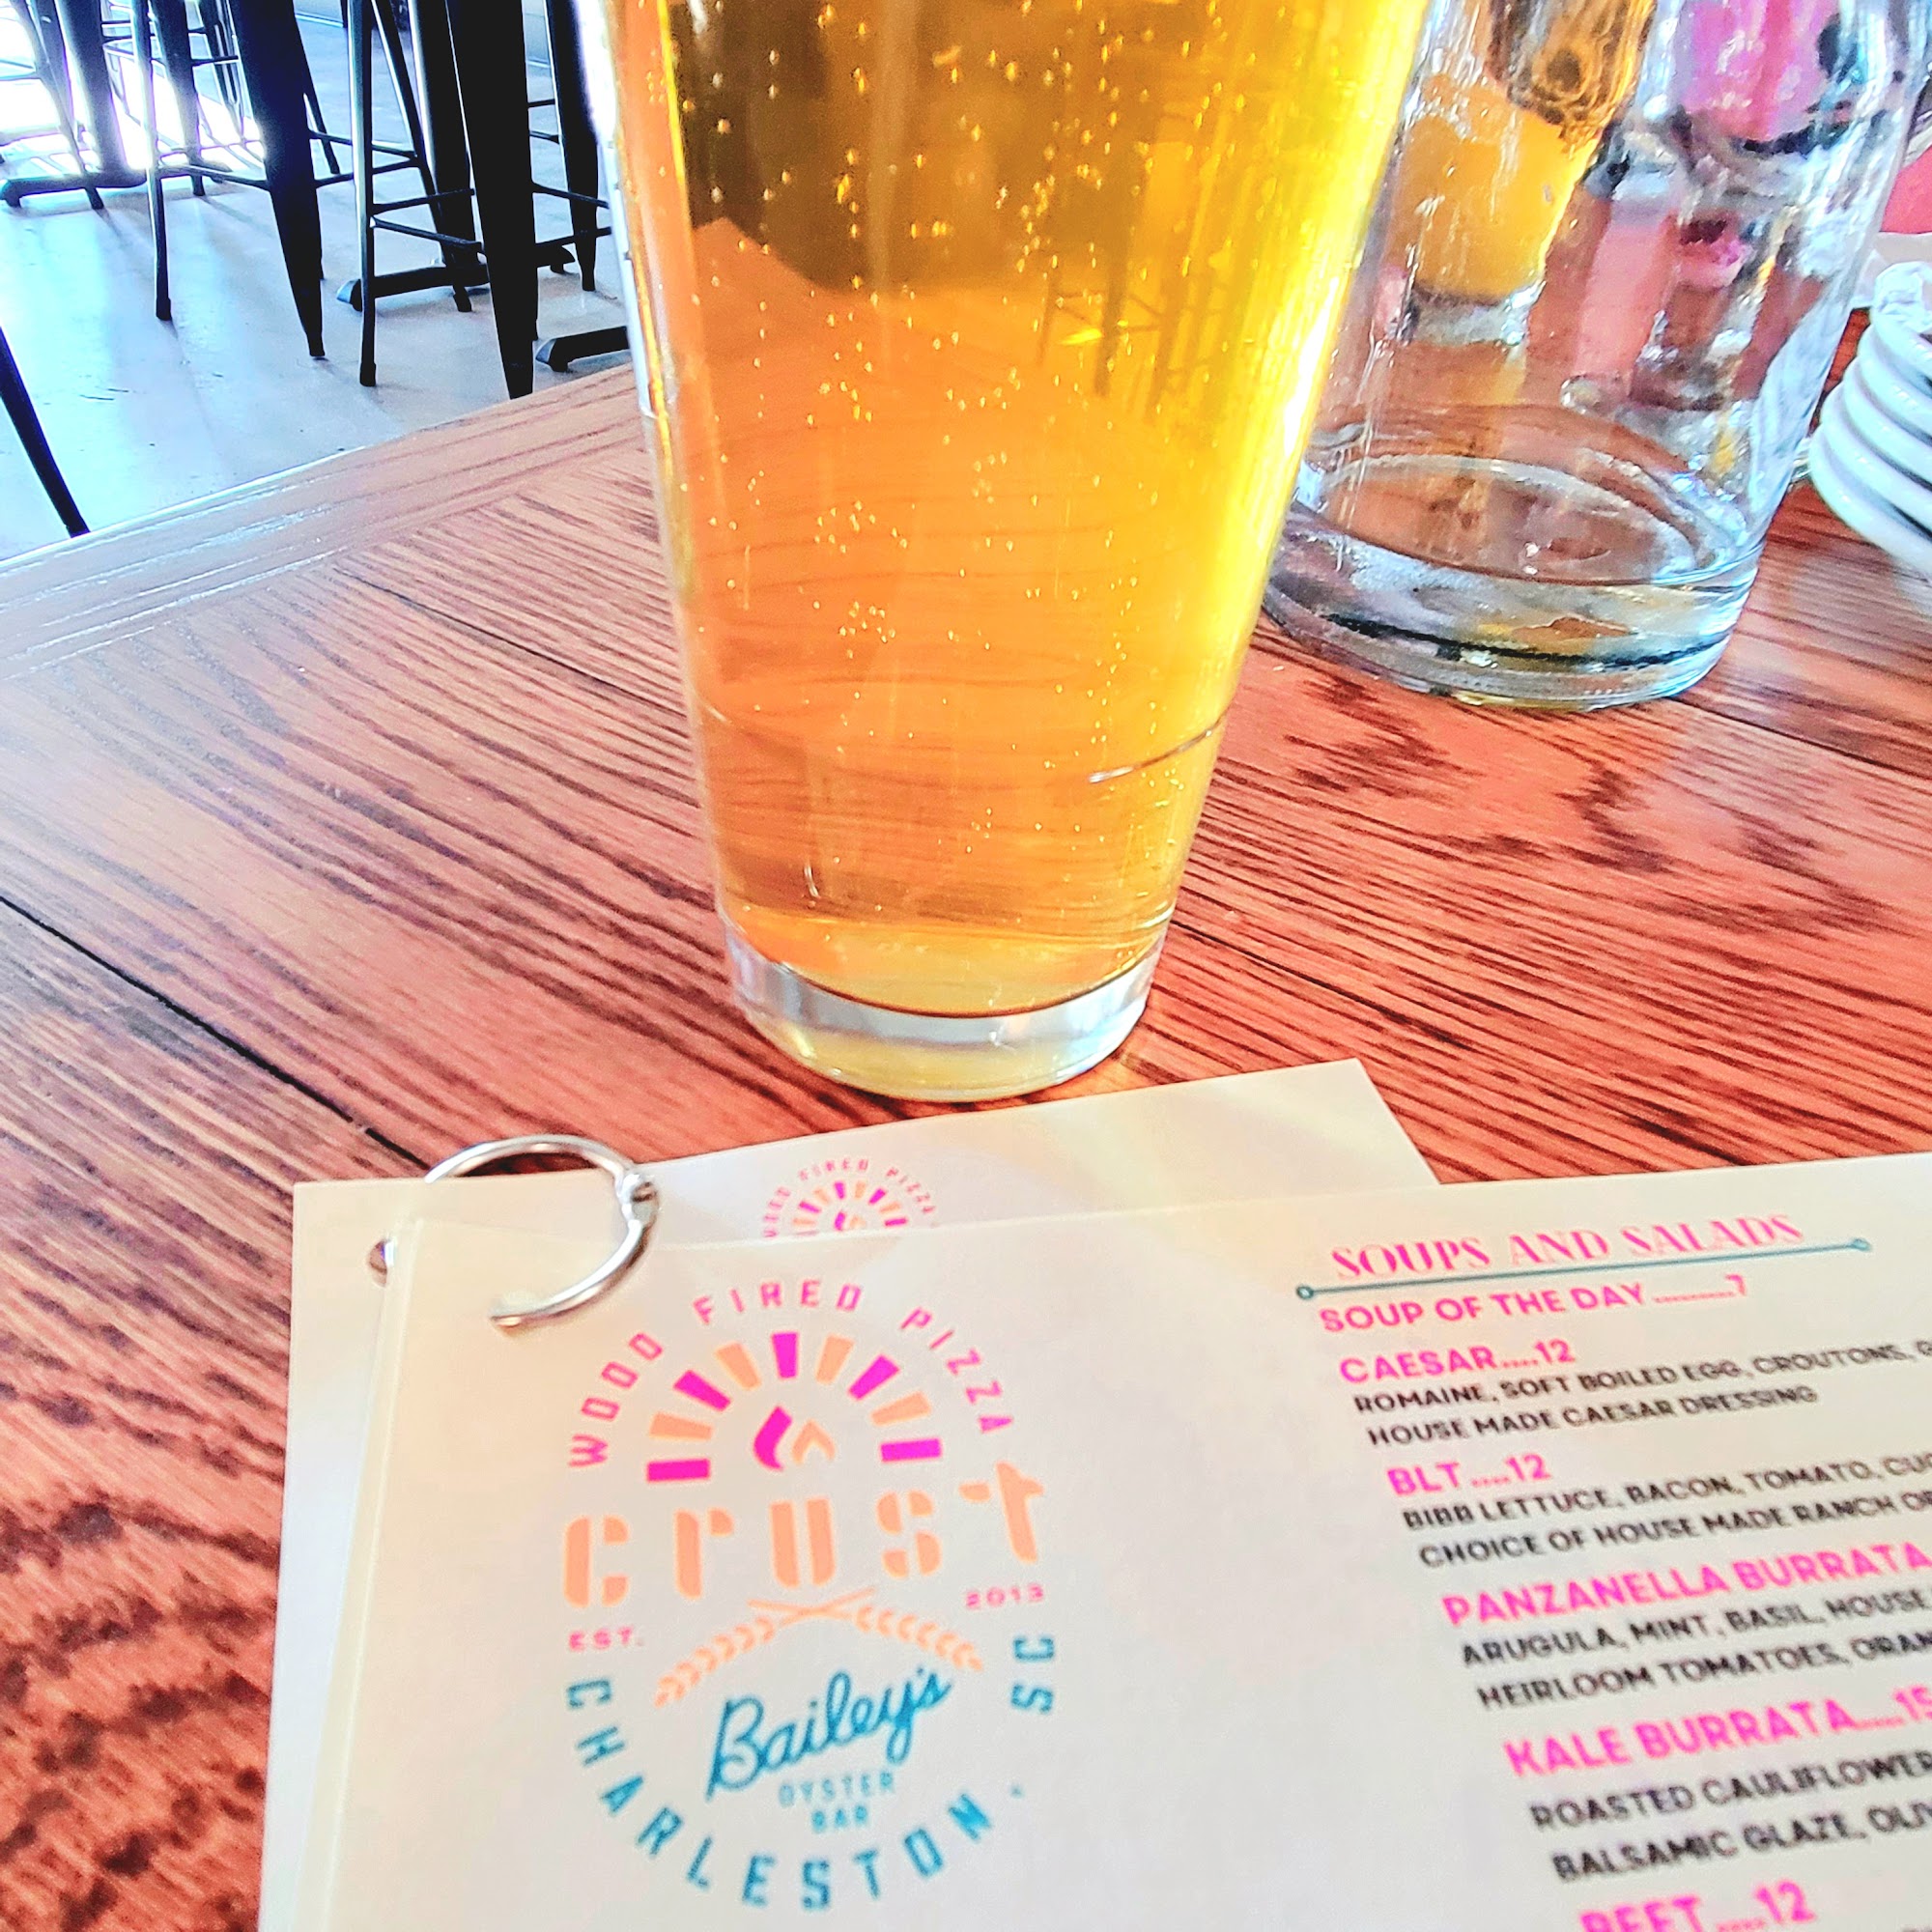 WOOD FIRED PIZZA
WOOD FIRED PIZZA
crust
EST. 2013
Bailey's
OYSTER
BAR
CHARLESTON, SC
SOUPS AND SALADS
SOUP OF THE DAY .........7
CAESAR....12
ROMAINE, SOFT BOILED EGG, CROUTONS, G
HOUSE MADE CAESAR DRESSING
BLT....12
BIBB LETTUCE, BACON, TOMATO, CUC
CHOICE OF HOUSE MADE RANCH OR
PANZANELLA BURRATA
ARUGULA, MINT, BASIL, HOUSE
HEIRLOOM TOMATOES, ORAN
KALE BURRATA....15
ROASTED CAULIFLOWER
BALSAMIC GLAZE, OLIV
BEET....12